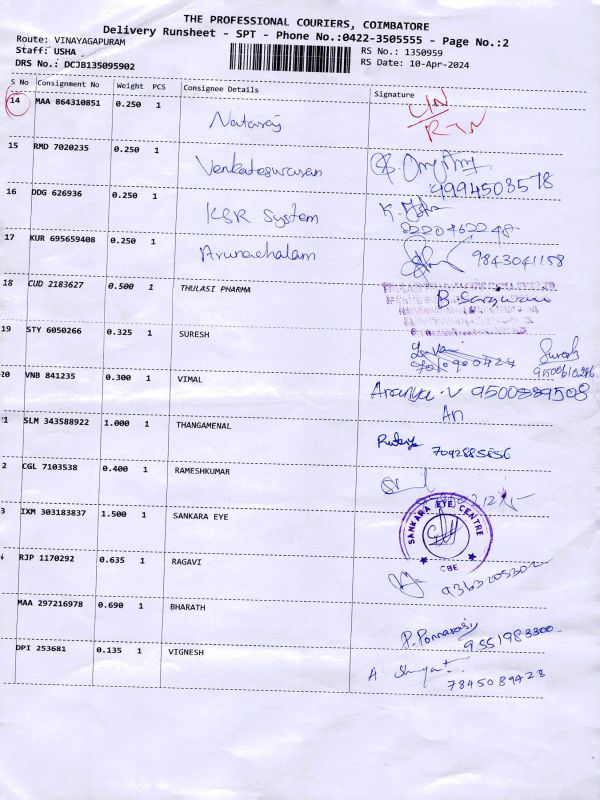 THE PROFESSIONAL COURIERS, COIMBATORE
Delivery Runsheet - SPT - Phone No.:0422-3505555 - Page No.:2
Route: VINAYAGAPURAM
Staff: USHA RS No.: 1350959
DRS No.: DCJB135095902 RS Date: 10-Apr-2024
S No Consignment No Weight PCS Consignee Details Signature
14 MAA 864310851 0.250 1 Nataraj
15 RMD 7020235 0.250 1 Venkateswaran
9994503578
16 DDG 626936 0.250 1 KSR System
8220462248
17 KUR 695659408 0.250 1 Arunachalam 9843041158
18 CUD 2183627 0.500 1 THULASI PHARMA
19 STY 6050266 0.325 1 SURESH Suresh
20 VNB 841235 0.300 1 VIMAL Aranya.V 9500889508
1 SLM 343588922 1.000 1 THANGAMENAL
7092885856
2 CGL 7103538 0.400 1 RAMESHKUMAR
3 IXM 303183837 1.500 1 SANKARA EYE SANKARA EYE CENTRE
CBE
RJP 1170292 0.635 1 RAGAVI
MAA 297216978 0.690 1 BHARATH P. Ponnarasi
9551983300
DPI 253681 0.135 1 VIGNESH
7845089428